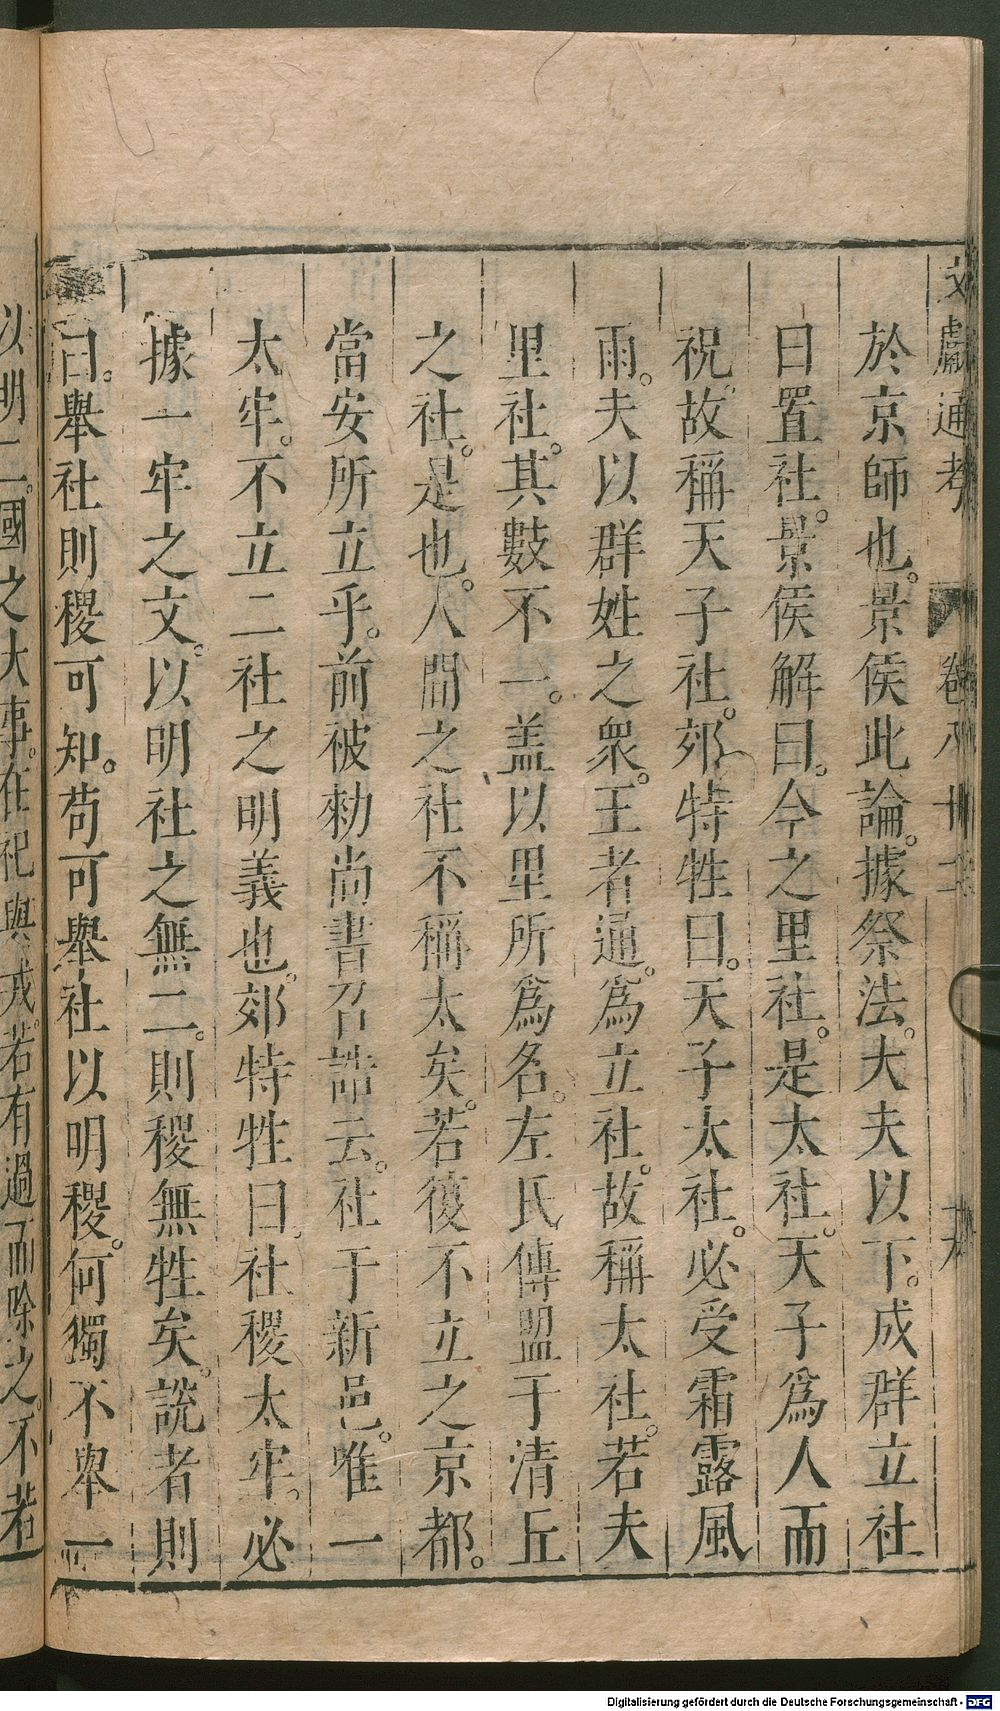 文獻通考 卷八十二
於京師也。景侯此論。據祭法。大夫以下。成群立社
曰置社。景侯解曰。今之里社。是太社。天子爲人而
祝。故稱天子社。郊特牲曰。天子太社。必受霜露風
雨。夫以群姓之衆。王者通。爲立社。故稱太社。若夫
里社。其數不一。盖以里所爲名。左氏傳盟于清丘
之社。是也。人間之社不稱太矣。若復不立之京都。
當安所立乎。前被勑尚書召誥云。社于新邑。唯一
太牢。不立二社之明義也。郊特牲曰。社稷太牢。必
據一牢之文。以明社之無二。則稷無牲矣。說者則
曰。舉社則稷可知。苟可舉社以明稷。何獨不舉一
以明二。國之大事。在祀與戎。若有過而除之。不若
Digitalisierung gefördert durch die Deutsche Forschungsgemeinschaft - DFG